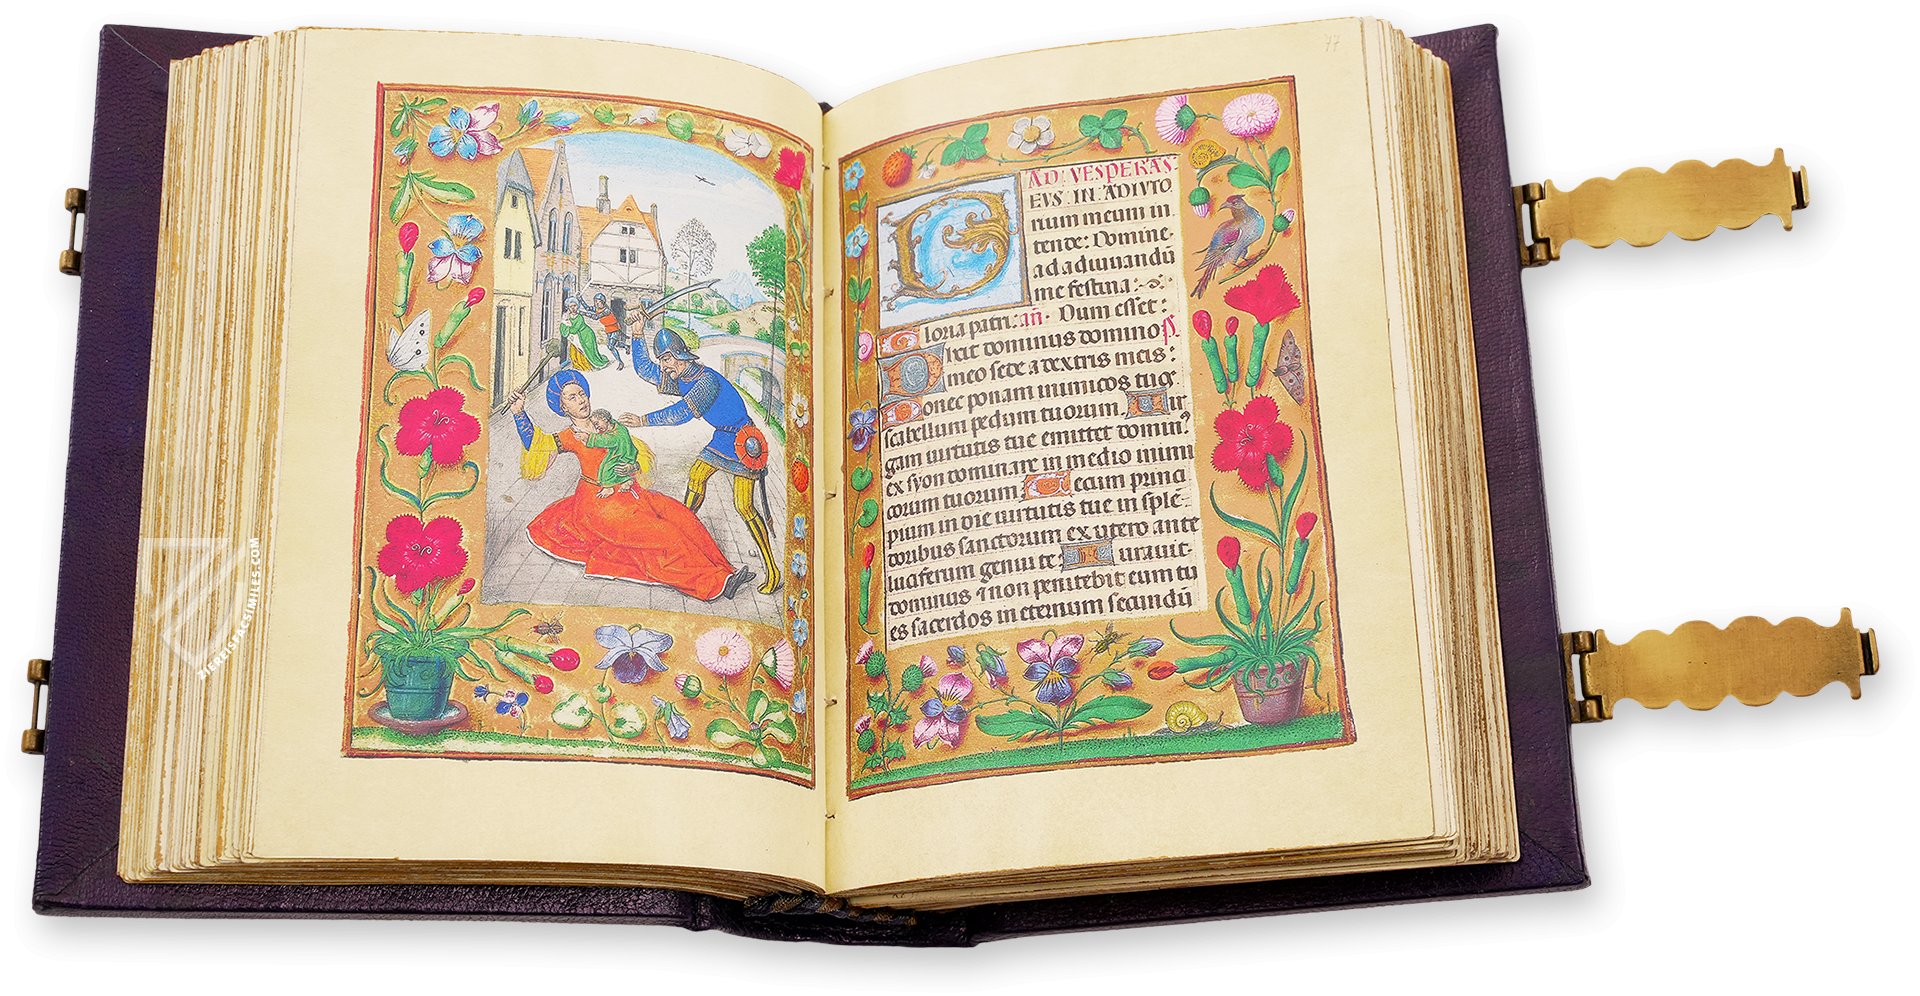 77
AD. VESPERAS.
EVS. IN. ADIVTO
rium meum in
tende: Domine
ad adiuuandū
me festina:
Gloria patri: añ. Dum esset:
Dixit dominus domino ps.
meo sede a dextris meis:
Donec ponam inimicos tuos.
scabellum pedum tuorum. Uir
gam uirtutis tue emittet domin9
ex syon dominare in medio inimi
corum tuorum. Tecum princi
pium in die uirtutis tue in splē
doribus sanctorum ex utero ante
luciferum genui te Iurauit
dominus & non penitebit eum tu
es sacerdos in eternum secundū
ZIEREISFACSIMILES.COM